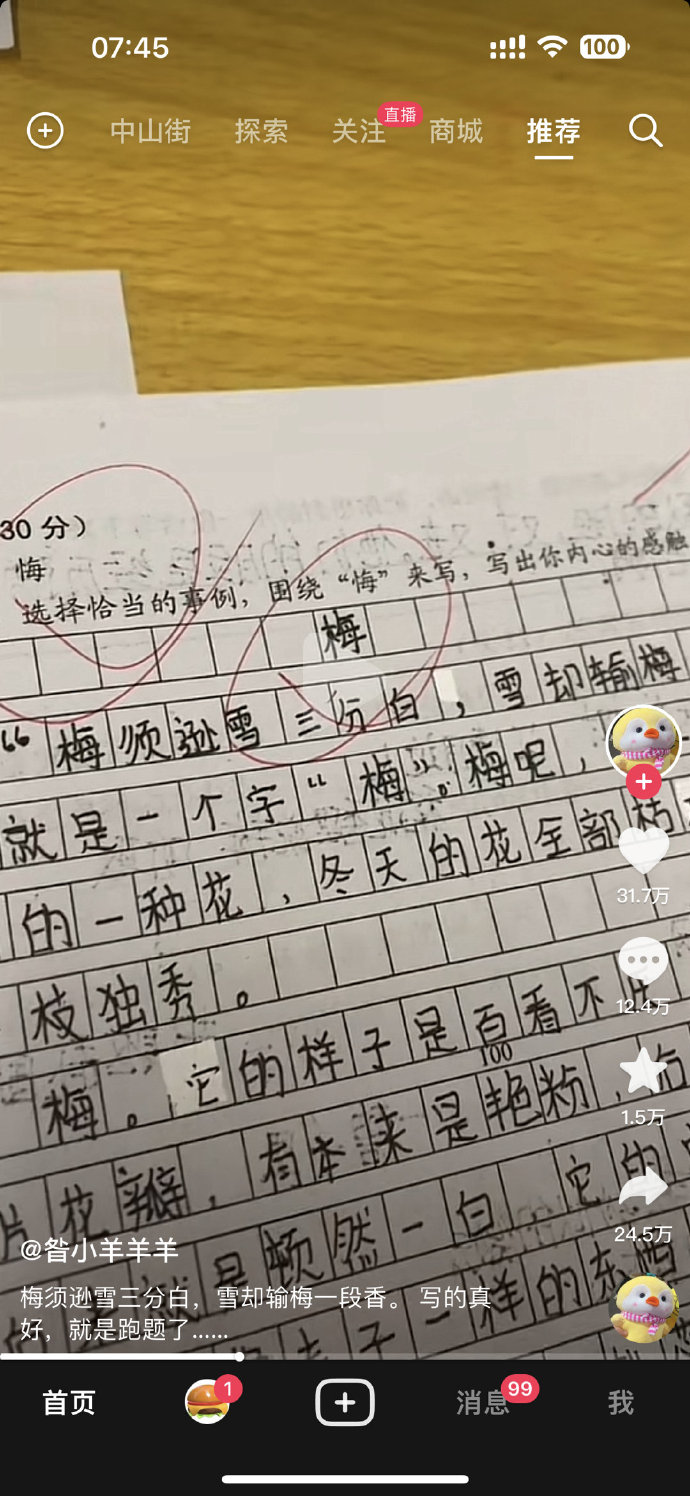 07:45
100
中山街 探索 关注 直播 商城 推荐
30 分）
悔
选择恰当的事例，围绕“悔”来写，写出你内心的感触
梅
“梅须逊雪三分白，雪却输梅
就是一个字“梅”。梅呢，
的一种花，冬天的花全部枯
枝独秀。
梅。它的样子是百看不
100
片花瓣，有本来是艳粉，后
是顿然一白 它的
子一样的东西
31.7万
12.4万
1.5万
24.5万
@昝小羊羊羊
梅须逊雪三分白，雪却输梅一段香。 写的真
好，就是跑题了……
首页
1
消息
99
我